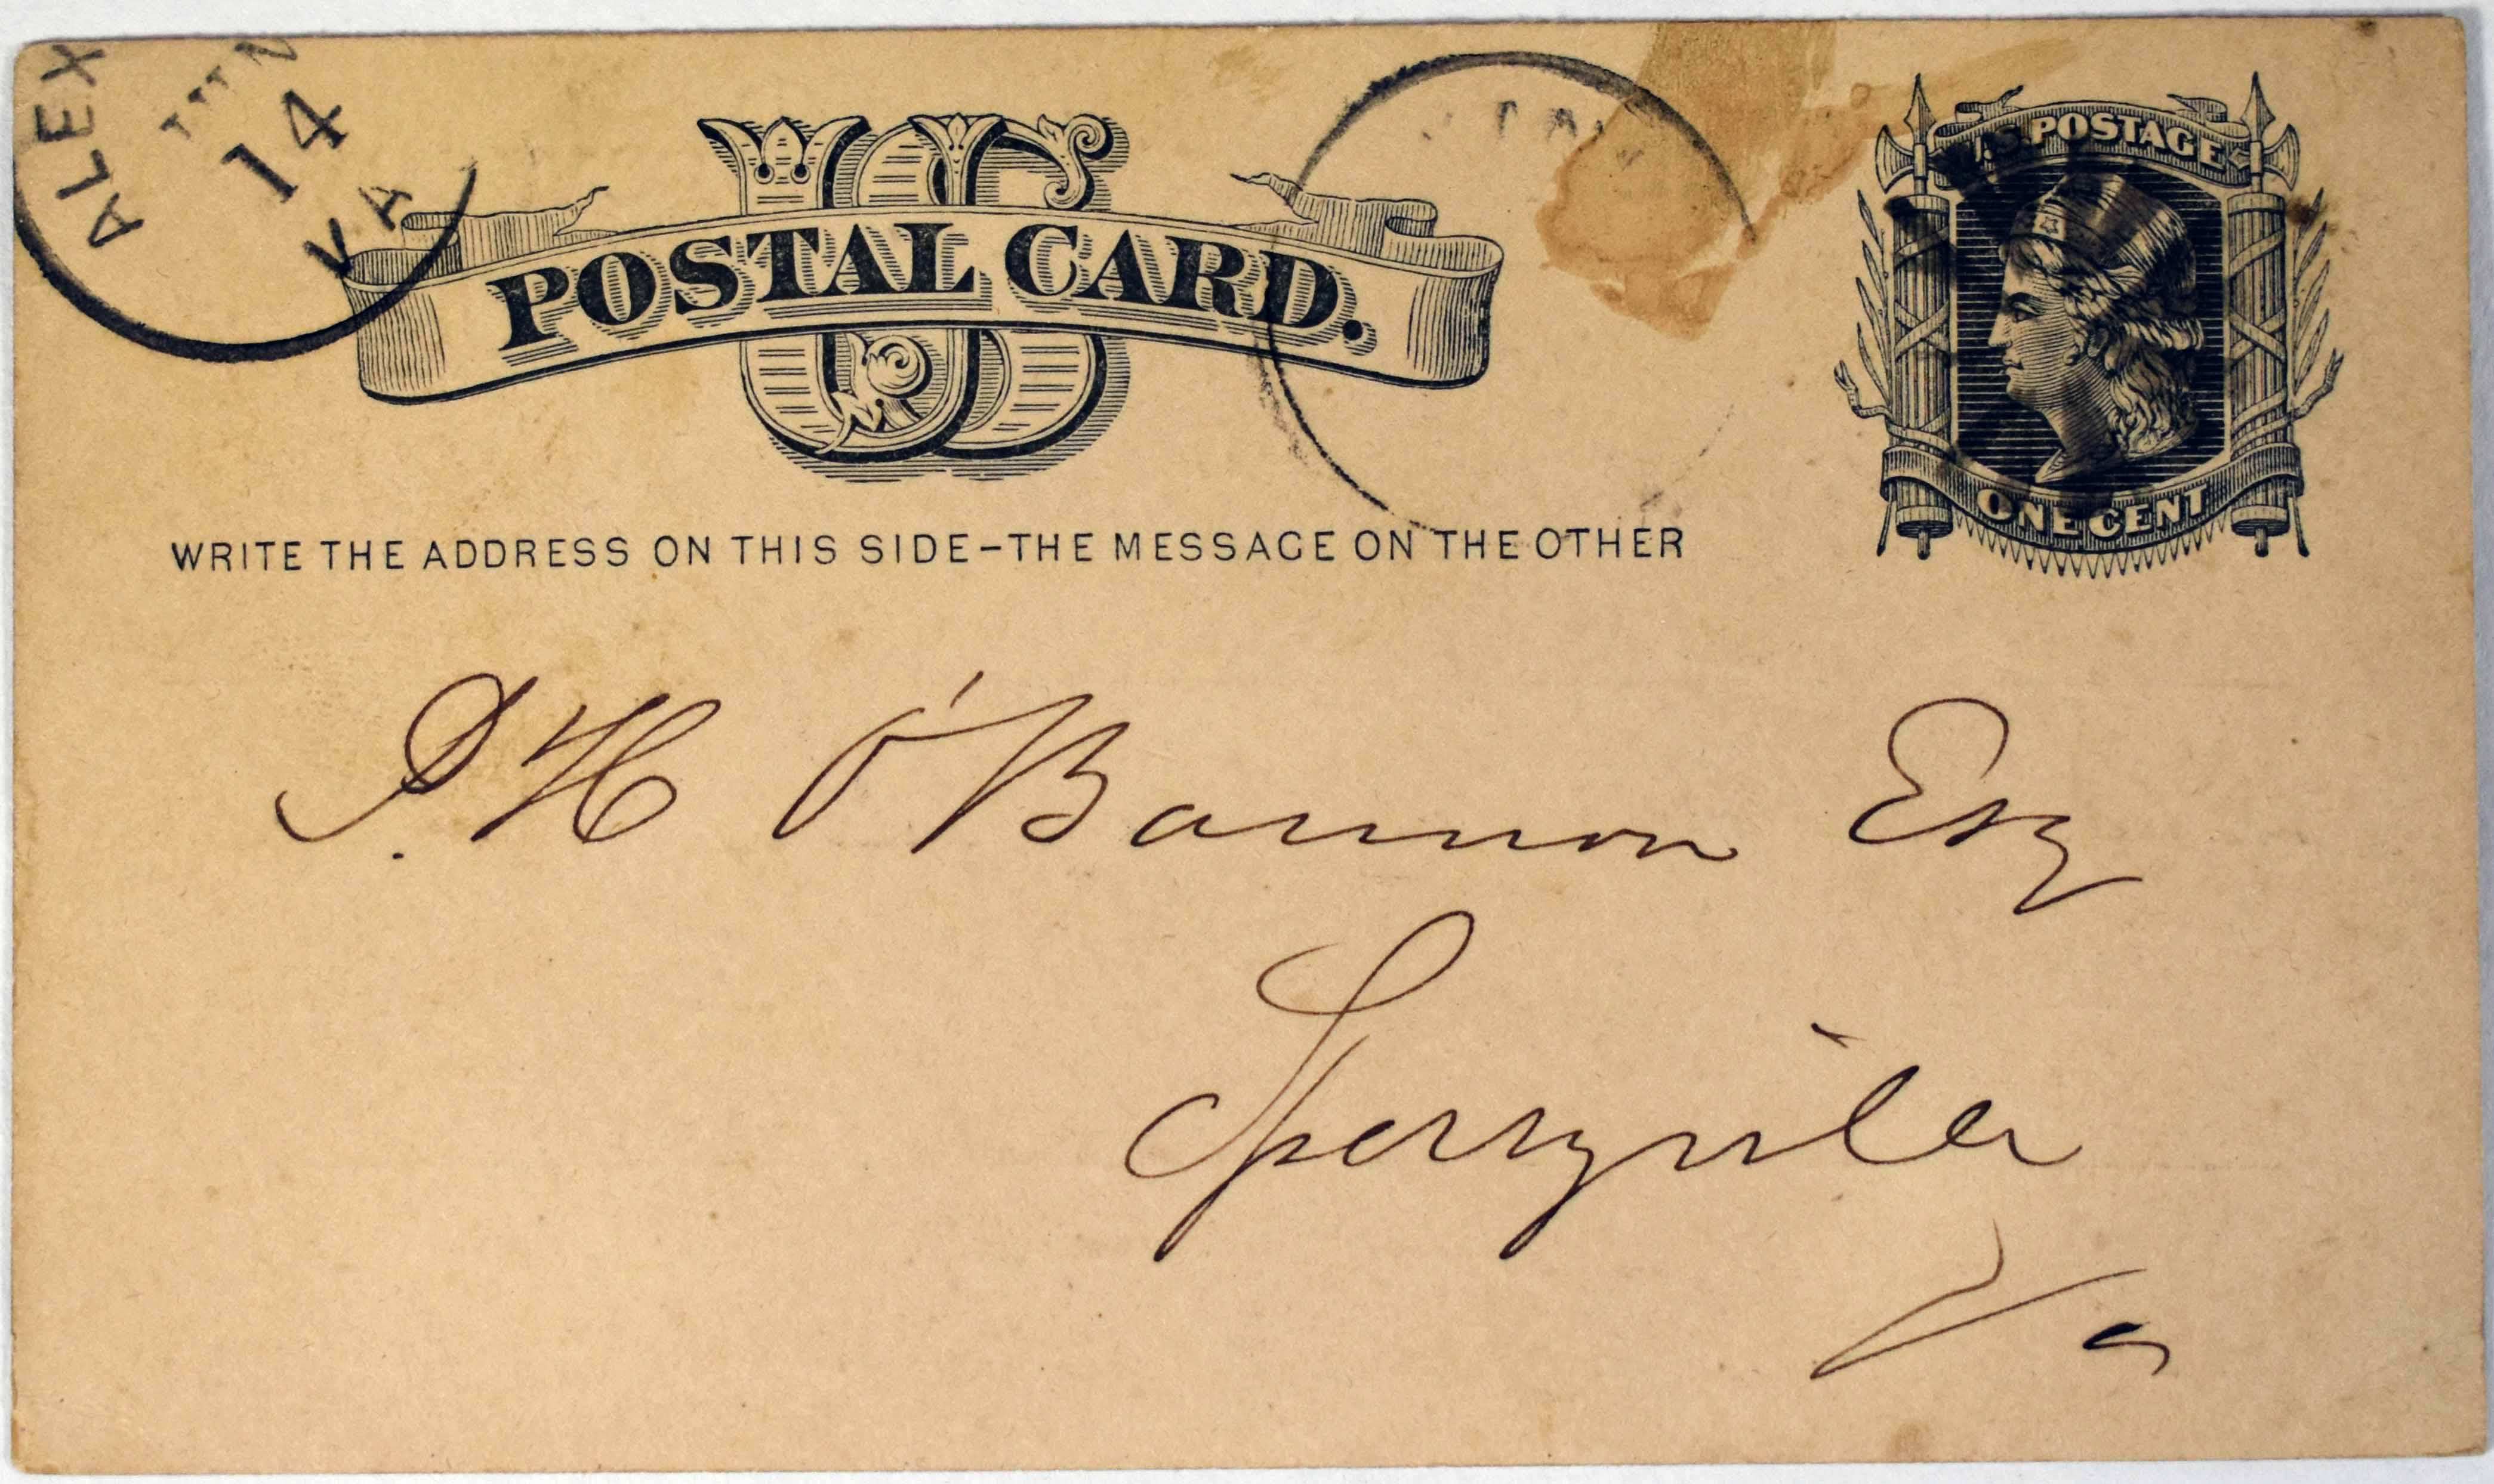 ALEX
JUN
14
VA
US
POSTAL CARD.
U.S. POSTAGE
ONE CENT
WRITE THE ADDRESS ON THIS SIDE-THE MESSAGE ON THE OTHER
P. H O'Bannon Esq
Sperryville
Va